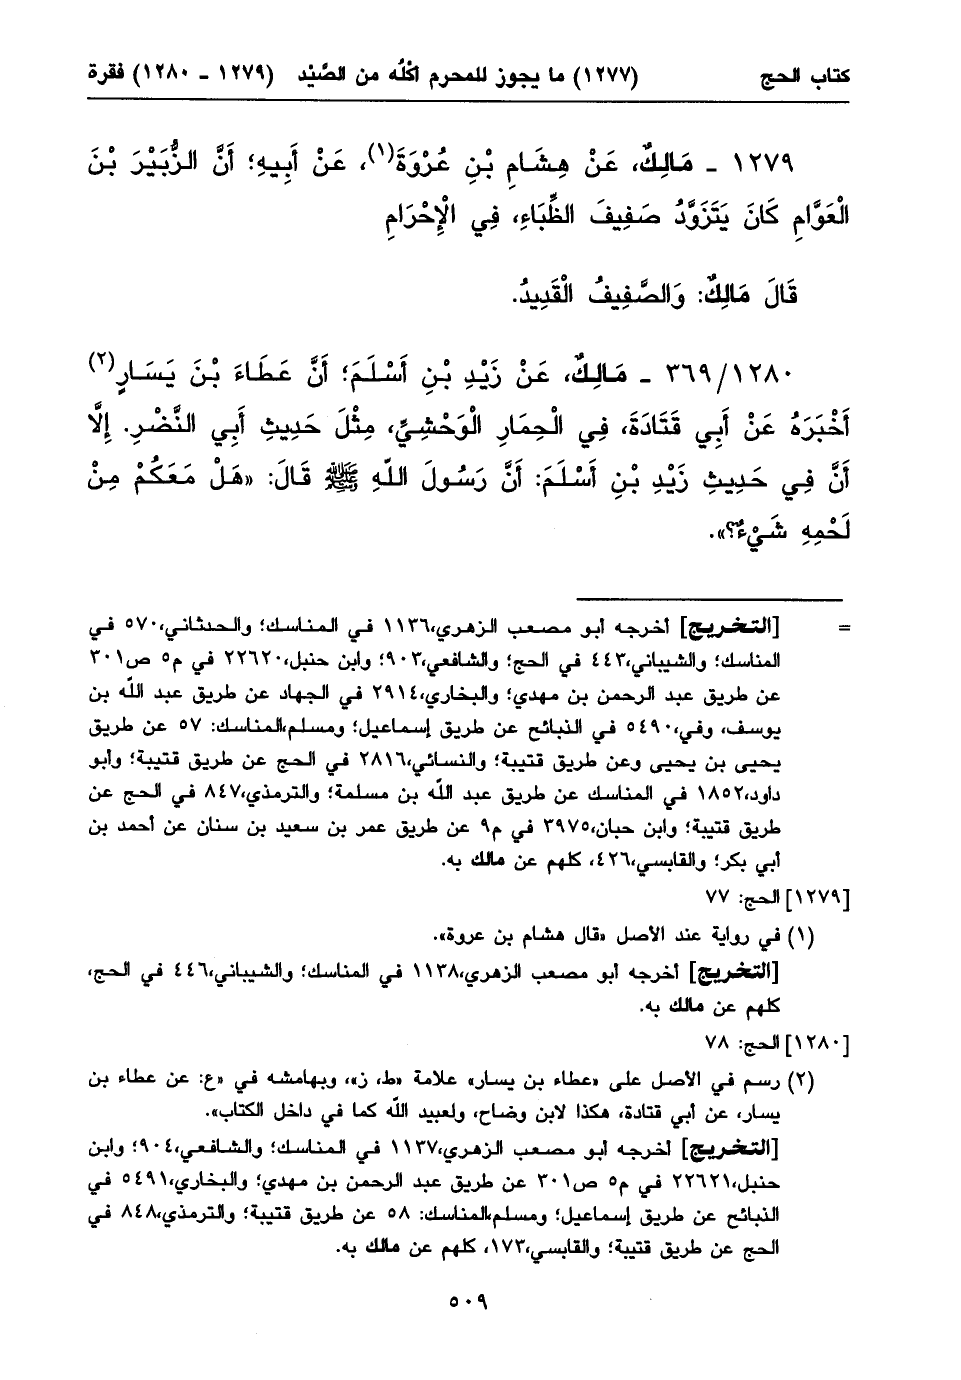 كتاب الحج (١٢٧٧) ما يجوز للمحرم أكْلُه من الصَّيْد (١٢٧٩ - ١٢٨٠) فقرة
١٢٧٩ - مَالِكٌ، عَنْ هِشَامِ بْنِ عُرْوَةَ(١)، عَنْ أَبِيهِ؛ أَنَّ الزُّبَيْرَ بْنَ
الْعَوَّامِ كَانَ يَتَزَوَّدُ صَفِيفَ الظِّبَاءِ، فِي الْإِحْرَامِ
قَالَ مَالِكٌ: وَالصَّفِيفُ الْقَدِيدُ.
٣٦٩/١٢٨٠ - مَالِكٌ، عَنْ زَيْدِ بْنِ أَسْلَمَ؛ أَنَّ عَطَاءَ بْنَ يَسَارٍ(٢)
أَخْبَرَهُ عَنْ أَبِي قَتَادَةَ، فِي الْحِمَارِ الْوَحْشِيِّ، مِثْلَ حَدِيثِ أَبِي النَّضْرِ. إِلَّا
أَنَّ فِي حَدِيثِ زَيْدِ بْنِ أَسْلَمَ: أَنَّ رَسُولَ اللّهِ ﷺ قَالَ: «هَلْ مَعَكُمْ مِنْ
لَحْمِهِ شَيْءٌ؟».
= [التخريج] أخرجه أبو مصعب الزهري،١١٣٦ في المناسك؛ والحدثاني،٥٧٠ في
المناسك؛ والشيباني،٤٤٣ في الحج؛ والشافعي،٩٠٣؛ وابن حنبل،٢٢٦٢٠ في م٥ ص٣٠١
عن طريق عبد الرحمن بن مهدي؛ والبخاري،٢٩١٤ في الجهاد عن طريق عبد اللّه بن
يوسف، وفي،٥٤٩٠ في الذبائح عن طريق إسماعيل؛ ومسلم،المناسك: ٥٧ عن طريق
يحيى بن يحيى وعن طريق قتيبة؛ والنسائي،٢٨١٦ في الحج عن طريق قتيبة؛ وأبو
داود،١٨٥٢ في المناسك عن طريق عبد اللّه بن مسلمة؛ والترمذي،٨٤٧ في الحج عن
طريق قتيبة؛ وابن حبان،٣٩٧٥ في م٩ عن طريق عمر بن سعيد بن سنان عن أحمد بن
أبي بكر؛ والقابسي،٤٢٦، كلهم عن مالك به.
[١٢٧٩] الحج: ٧٧
(١) في رواية عند الأصل «قال هشام بن عروة».
[التخريج] أخرجه أبو مصعب الزهري،١١٣٨ في المناسك؛ والشيباني،٤٤٦ في الحج،
كلهم عن مالك به.
[١٢٨٠] الحج: ٧٨
(٢) رسم في الأصل على «عطاء بن يسار» علامة «ط، ز»، وبهامشه في «ع: عن عطاء بن
يسار، عن أبي قتادة، هكذا لابن وضاح، ولعبيد اللّه كما في داخل الكتاب».
[التخريج] أخرجه أبو مصعب الزهري،١١٣٧ في المناسك؛ والشافعي،٩٠٤؛ وابن
حنبل،٢٢٦٢١ في م٥ ص٣٠١ عن طريق عبد الرحمن بن مهدي؛ والبخاري،٥٤٩١ في
الذبائح عن طريق إسماعيل؛ ومسلم،المناسك: ٥٨ عن طريق قتيبة؛ والترمذي،٨٤٨ في
الحج عن طريق قتيبة؛ والقابسي،١٧٣، كلهم عن مالك به.
٥٠٩